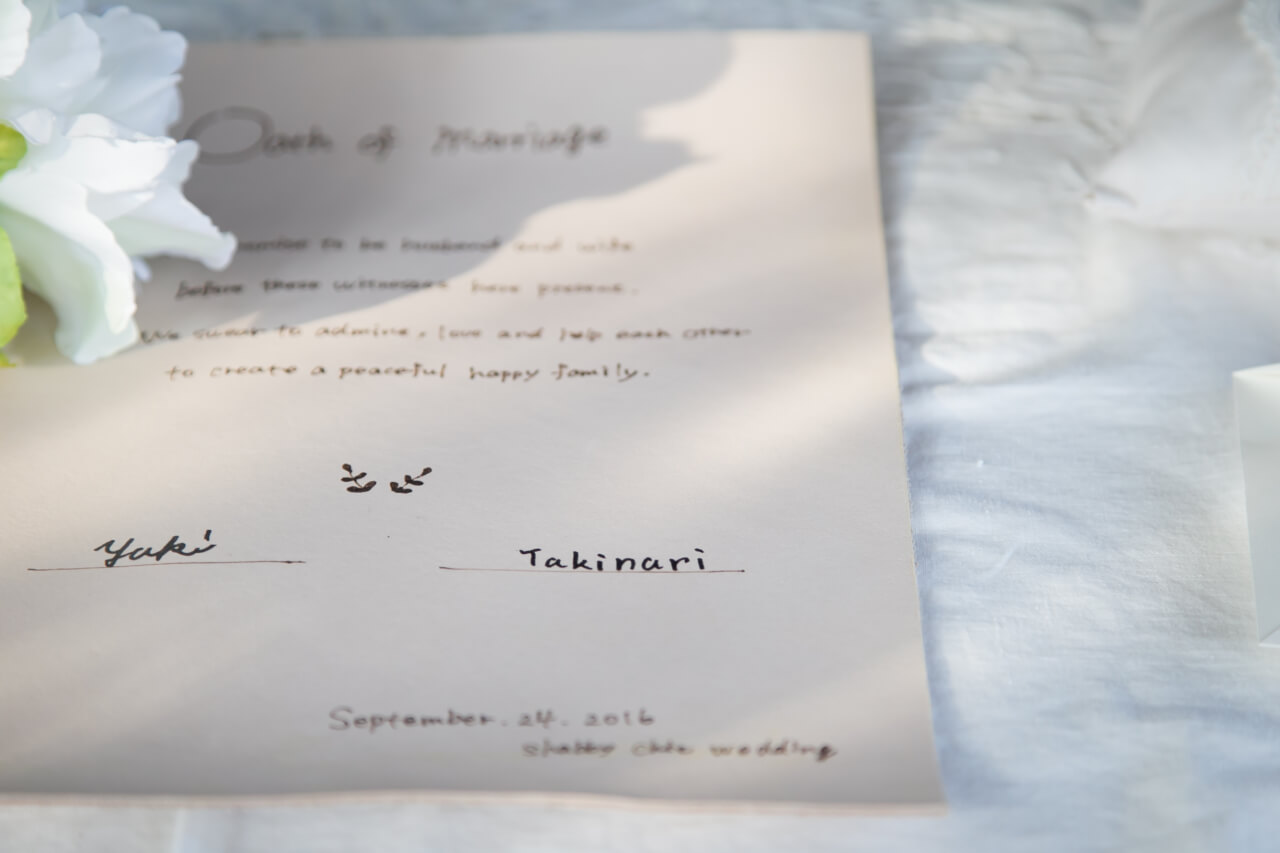 Oath of Marriage
to be husband and wife
before these witnesses here present.
We swear to admire, love and help each other
to create a peaceful happy family.
Yuki
Takinari
September. 24. 2016
shabby chic wedding